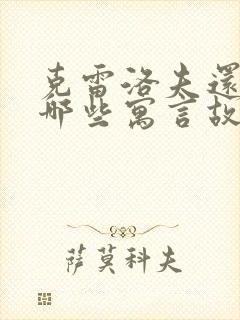 克雷洛夫還
那些寓言故
薩莫科夫